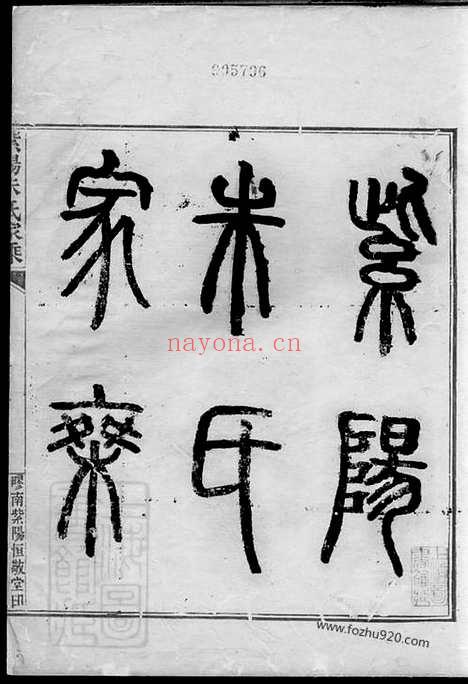 005796
紫陽
朱氏
家乘
紫陽朱氏家乘
膠南紫陽恒敬堂印
nayona.cn
www.fozhu920.com